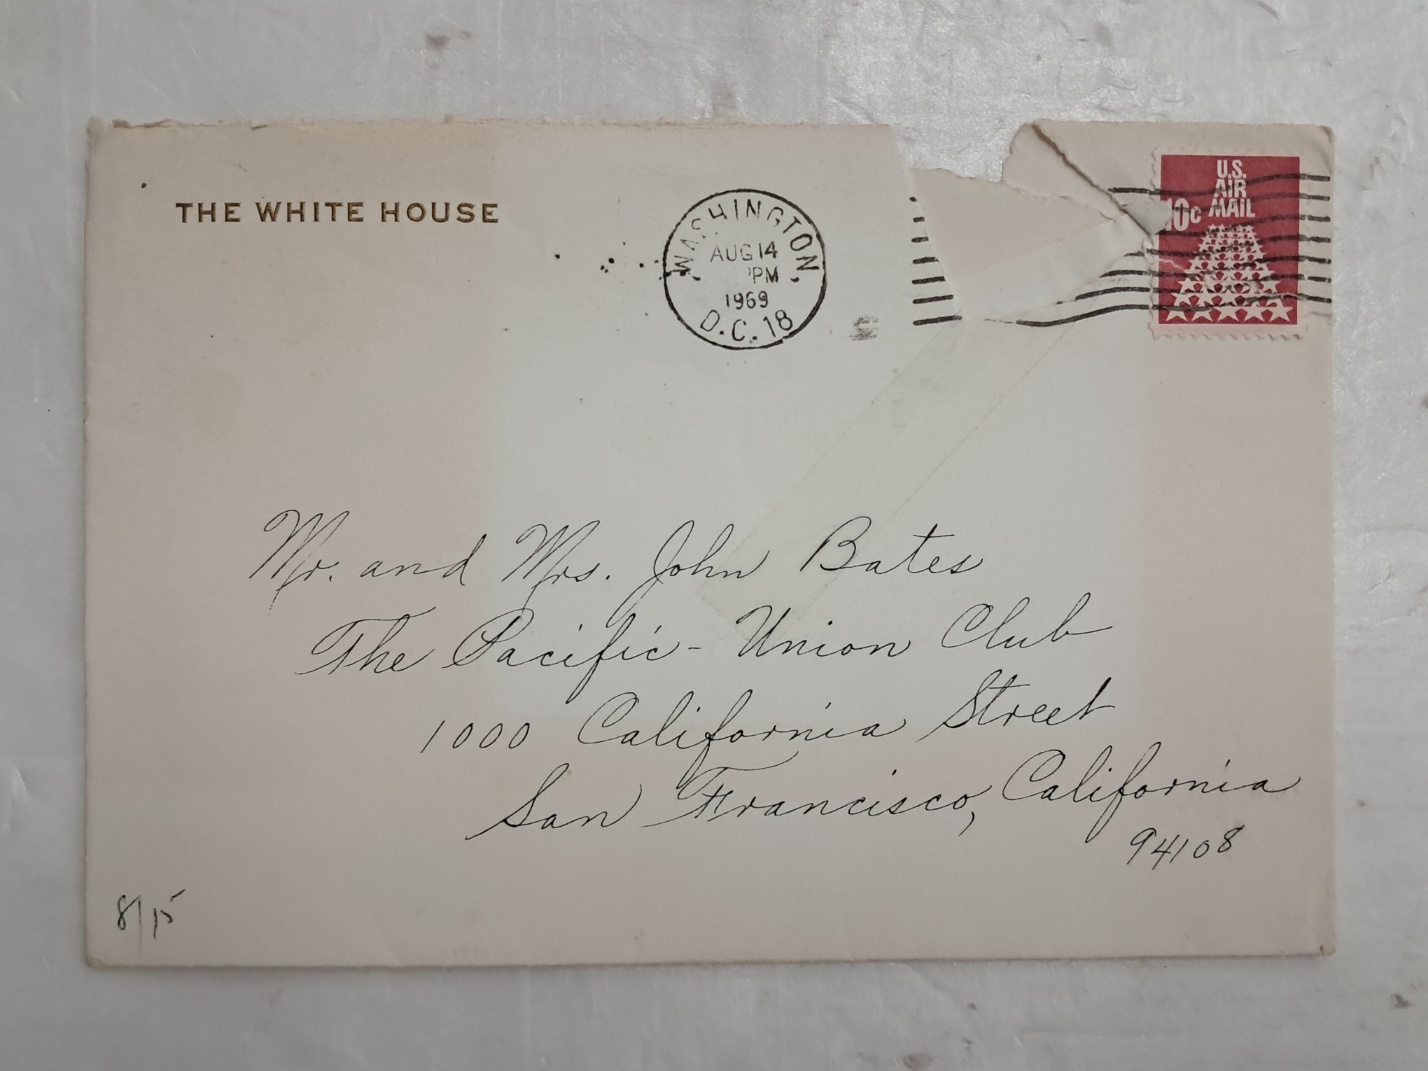 THE WHITE HOUSE
WASHINGTON,
AUG 14
PM
1969
D.C. 18
U.S.
AIR
MAIL
10c
Mr. and Mrs. John Bates
The Pacific-Union Club
1000 California Street
San Francisco, California
94108
8/15